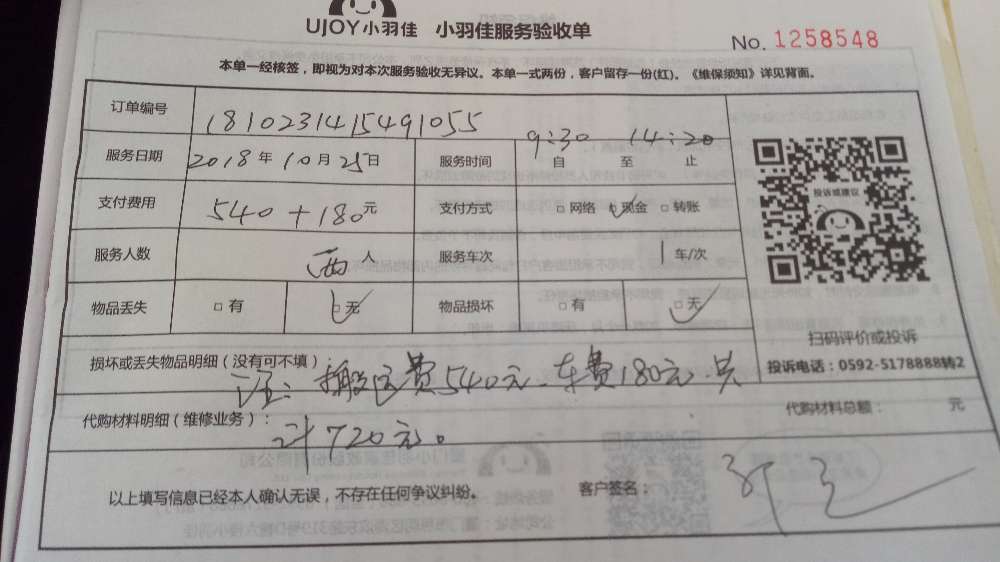 UJOY小羽佳 小羽佳服务验收单
No. 1258548
本单一经核签，即视为对本次服务验收无异议。本单一式两份，客户留存一份(红)。《维保须知》详见背面。
订单编号 1810231415491055
服务日期 2018年10月25日 服务时间 9:30 自 至 14:20 止
支付费用 540+180元 支付方式 □网络 □现金 □转账
服务人数 两人 服务车次 1车/次
物品丢失 □有 □无 物品损坏 □有 □无
投诉或建议
扫码评价或投诉
投诉电话：0592-5178888转2
损坏或丢失物品明细（没有可不填）：
注：搬运费540元.车费180元.共
代购材料明细（维修业务）： 代购材料总额： 元
计720元。
以上填写信息已经本人确认无误，不存在任何争议纠纷。 客户签名：